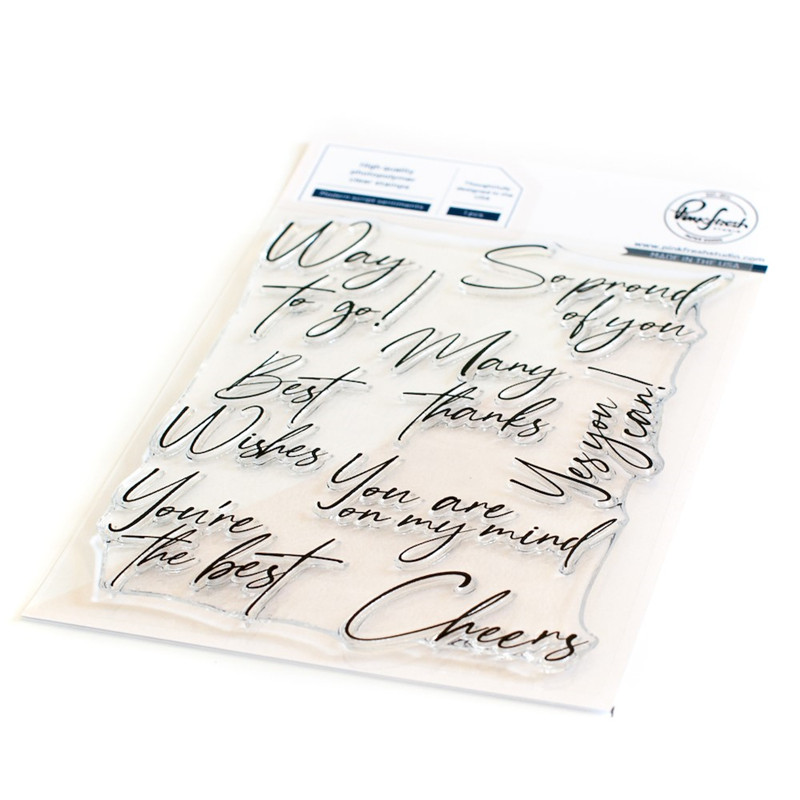 High quality
photopolymer
clear stamps
Modern script sentiments
Thoughtfully
designed in the
USA
1 pck
Pinkfresh
STUDIO
www.pinkfreshstudio.com
MADE IN THE USA
Way
to go!
So proud
of you
Many
thanks
Best
Wishes
Yes you
can!
You are
on my mind
You're
the best
Cheers